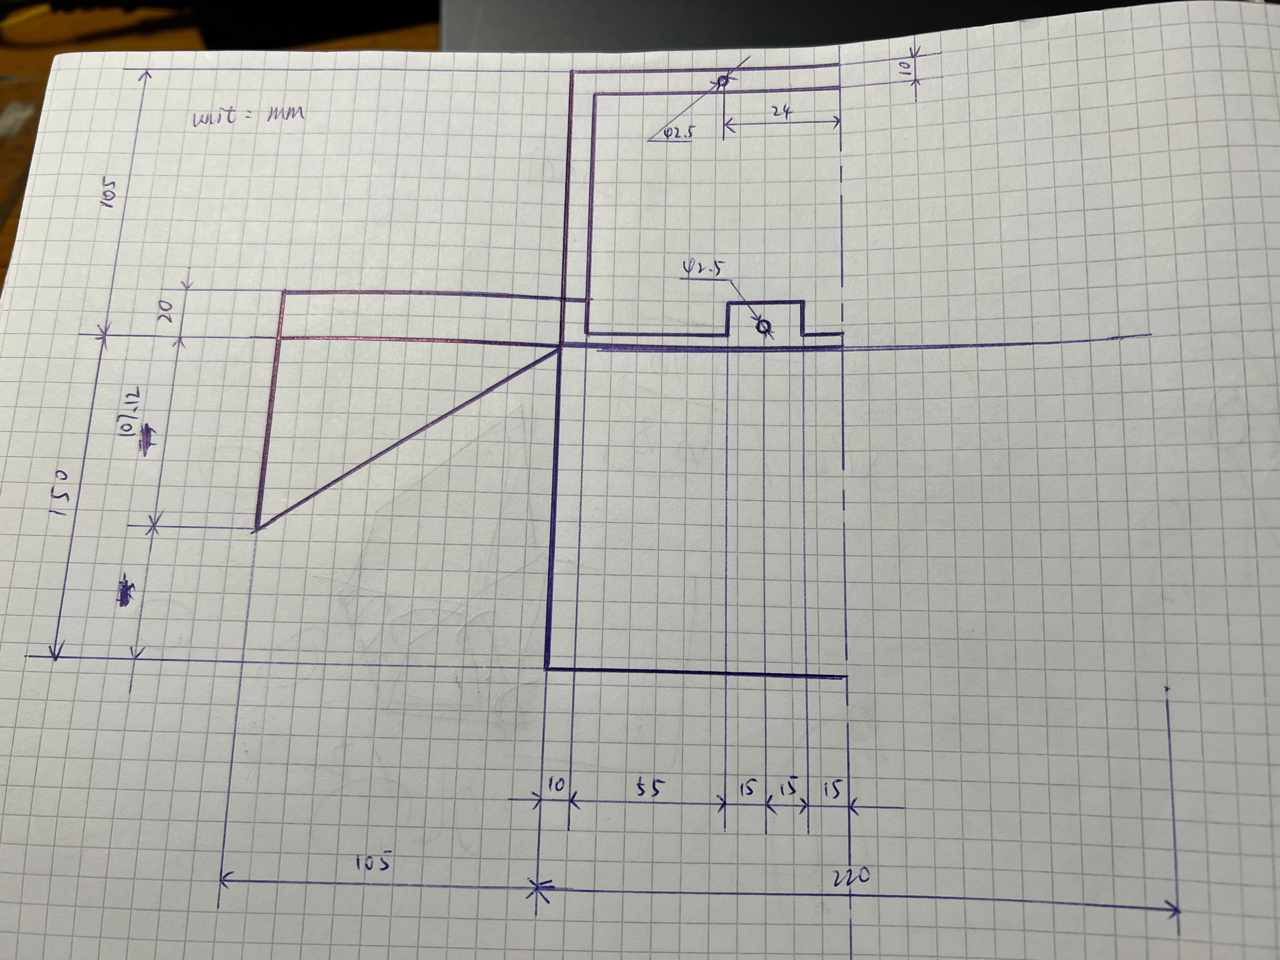 unit = mm
10
24
φ2.5
105
φ2.5
20
107.12
150
10
55
15
15
15
105
220